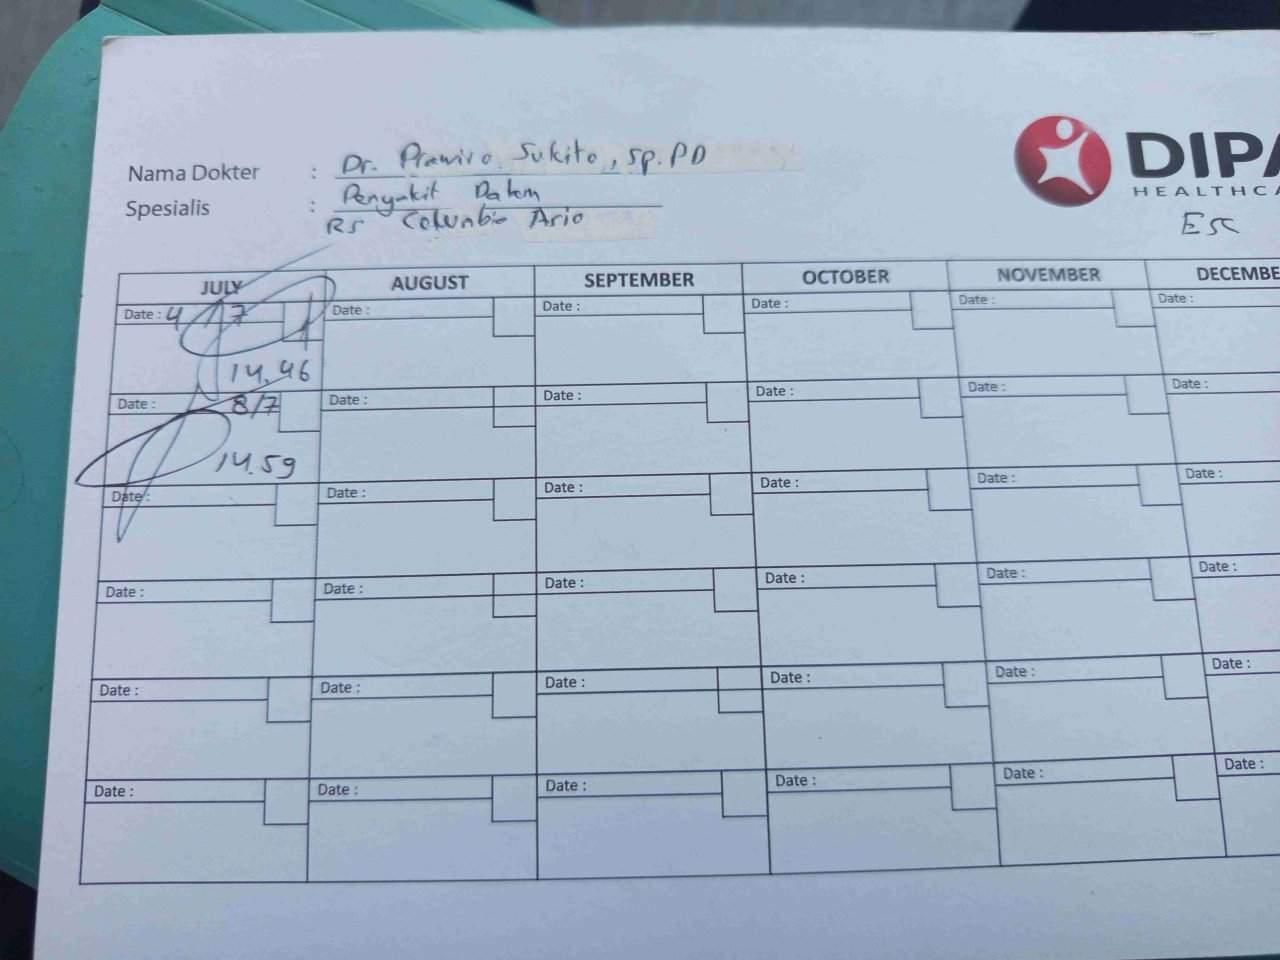 Nama Dokter : Dr. Prawiro Sukito, Sp.PD
Spesialis : Penyakit Dalam
RS Columbia Asia
DIPA
HEALTHCA
ESC
JULY AUGUST SEPTEMBER OCTOBER NOVEMBER DECEMBE
Date : 4 7 Date : Date : Date : Date : Date :
14.46
Date : 8/7 Date : Date : Date : Date : Date :
14.59
Date : Date : Date : Date : Date : Date :
Date : Date : Date : Date : Date : Date :
Date : Date : Date : Date : Date : Date :
Date : Date : Date : Date : Date : Date :